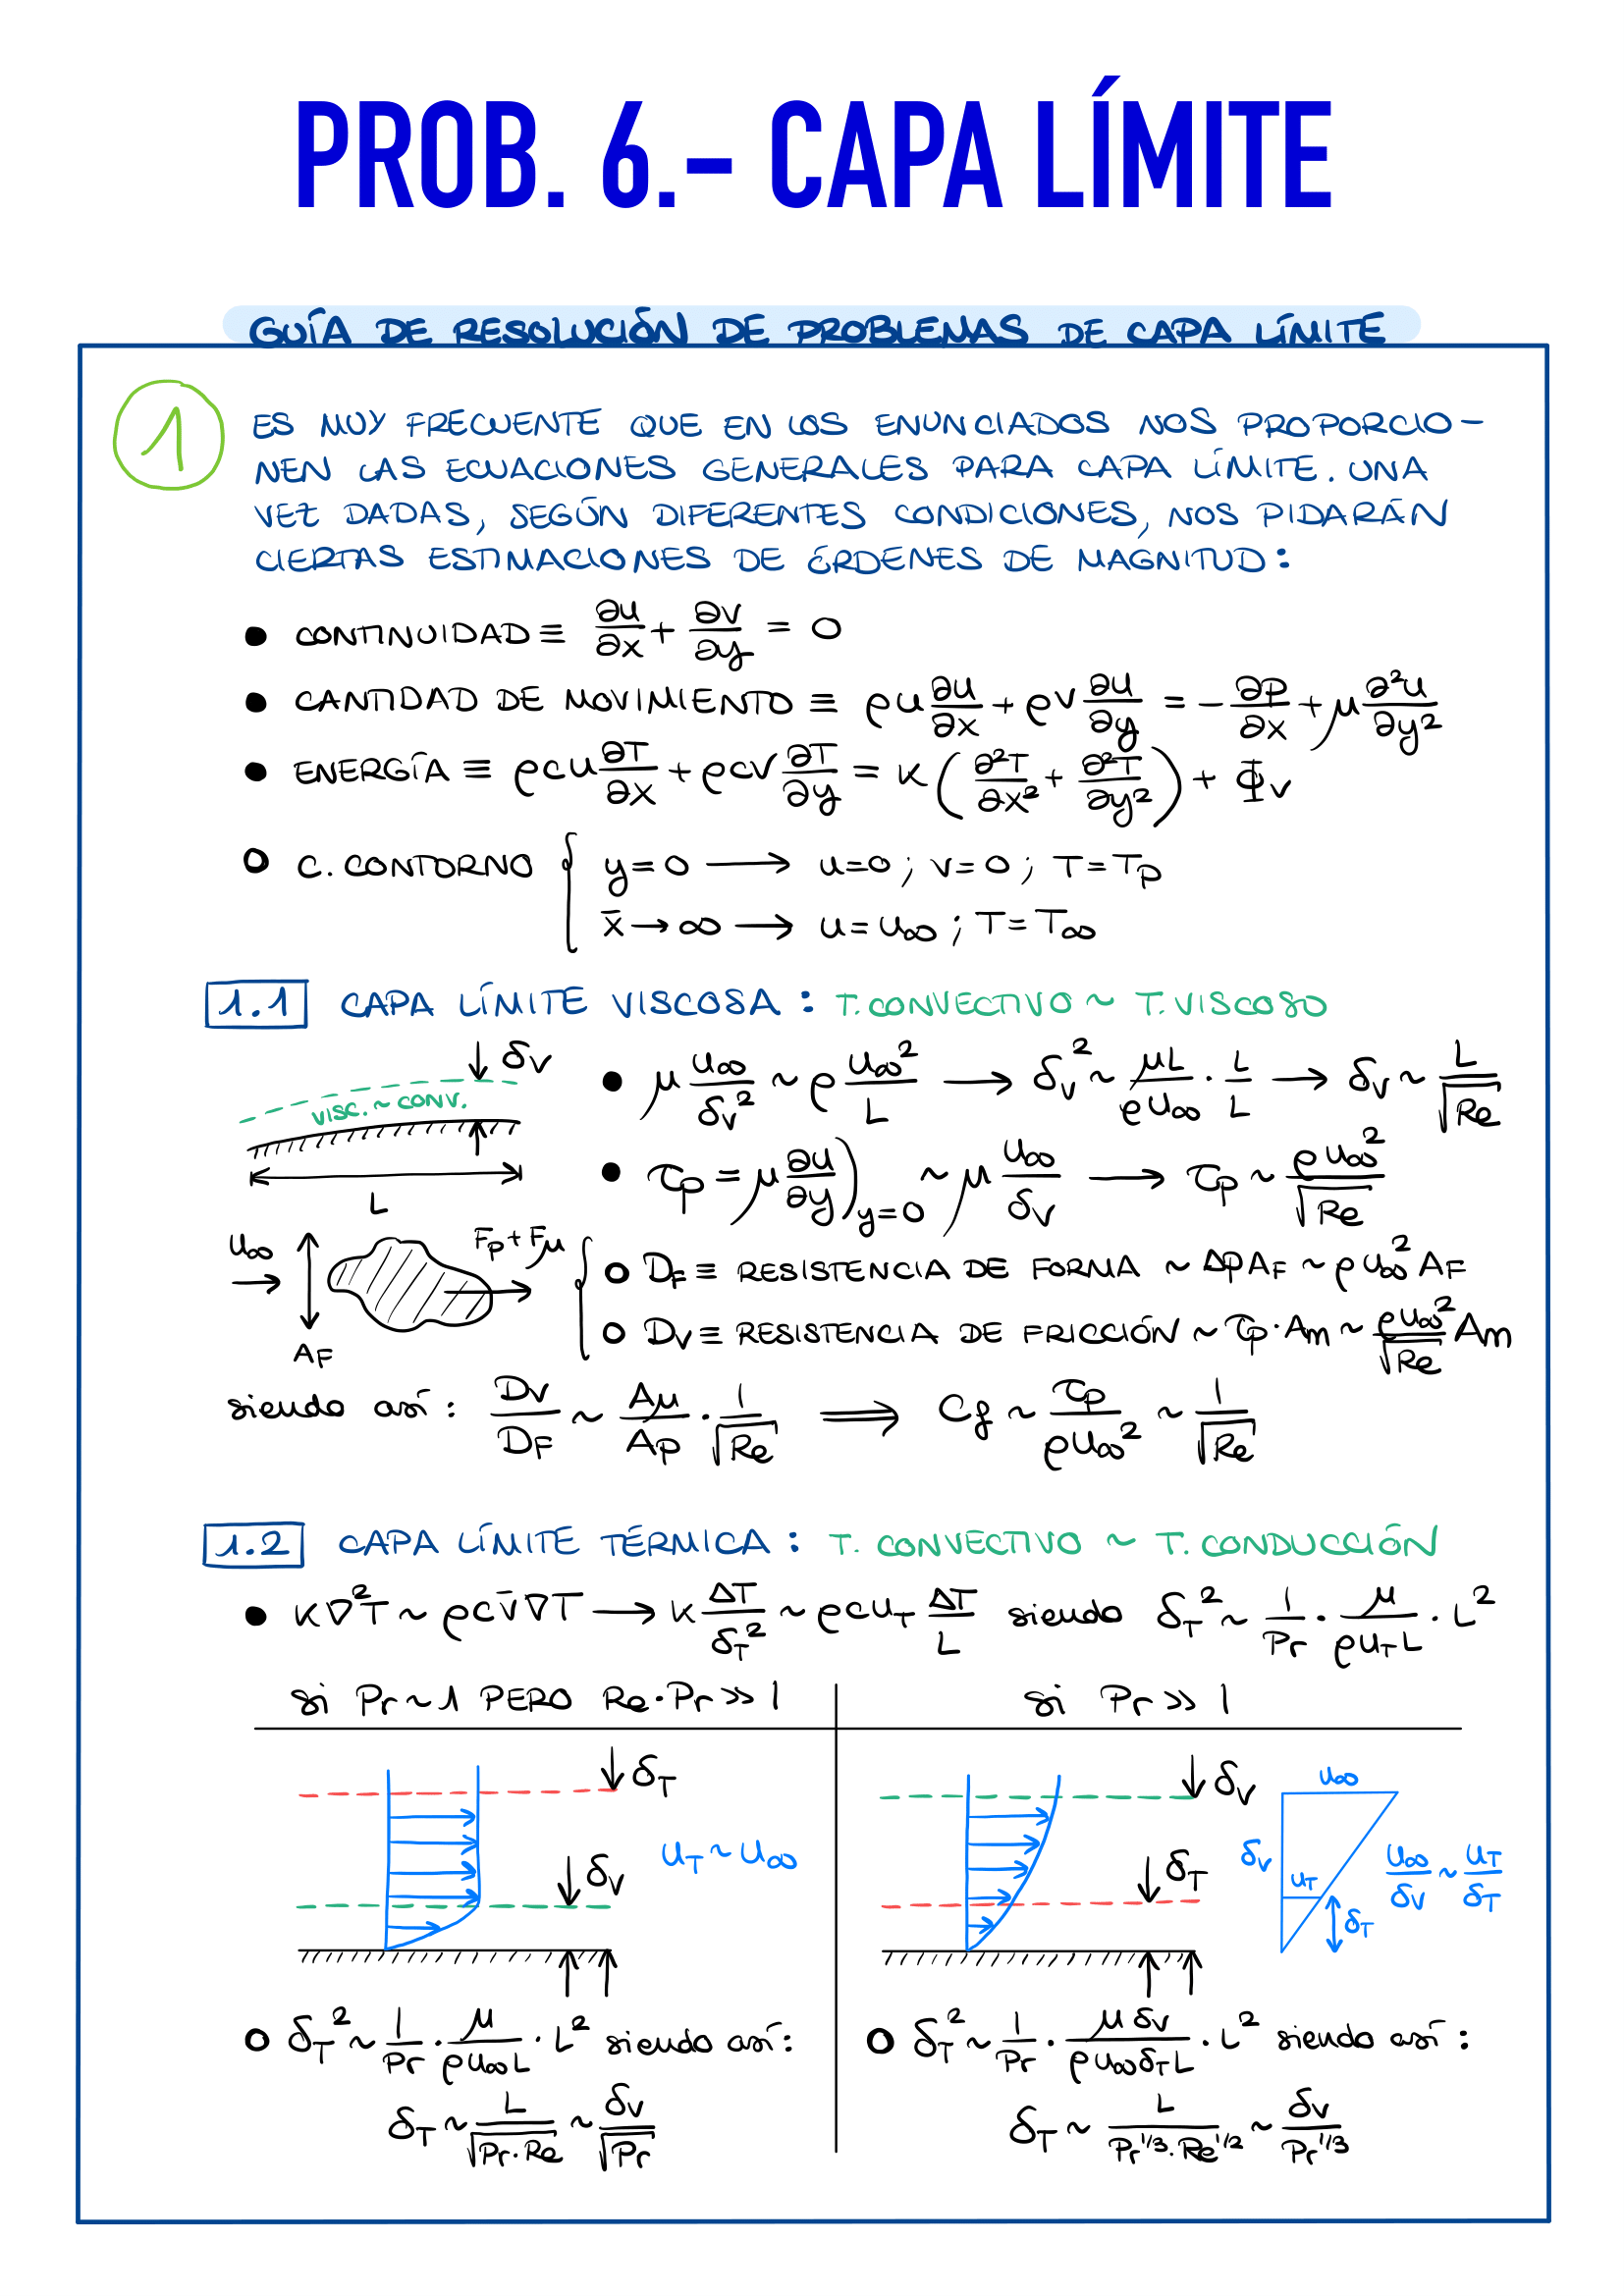 PROB. 6.- CAPA LÍMITE
GUÍA DE RESOLUCIÓN DE PROBLEMAS DE CAPA LÍMITE
1
ES MUY FRECUENTE QUE EN LOS ENUNCIADOS NOS PROPORCIO-
NEN LAS ECUACIONES GENERALES PARA CAPA LÍMITE. UNA
VEZ DADAS, SEGÚN DIFERENTES CONDICIONES, NOS PIDARÁN
CIERTAS ESTIMACIONES DE ÓRDENES DE MAGNITUD:
● CONTINUIDAD ≡ ∂u/∂x + ∂v/∂y = 0
● CANTIDAD DE MOVIMIENTO ≡ ρu ∂u/∂x + ρv ∂u/∂y = -∂p/∂x + μ ∂²u/∂y²
● ENERGÍA ≡ ρcu ∂T/∂x + ρcv ∂T/∂y = K (∂²T/∂x² + ∂²T/∂y²) + Φv
○ C. CONTORNO { y=0 → u=0 ; v=0 ; T=Tp
x̄ → ∞ → u=u∞ ; T=T∞
1.1 CAPA LÍMITE VISCOSA : T. CONVECTIVO ~ T. VISCOSO
δv
VISC. ~ CONV.
L
● μ u∞/δv² ~ ρ u∞²/L → δv² ~ μL/ρu∞ · L/L → δv ~ L/√Re
● τp = μ ∂u/∂y)y=0 ~ μ u∞/δv → τp ~ ρu∞²/√Re
u∞
AF
Fp + Fμ
○ DF ≡ RESISTENCIA DE FORMA ~ ΔpAF ~ ρu∞² AF
○ Dv ≡ RESISTENCIA DE FRICCIÓN ~ τp · Am ~ ρu∞²/√Re Am
siendo así : Dv/DF ~ Aμ/Ap · 1/√Re ⟹ Cf ~ τp/ρu∞² ~ 1/√Re
1.2 CAPA LÍMITE TÉRMICA : T. CONVECTIVO ~ T. CONDUCCIÓN
● K∇²T ~ ρcv̄∇T → K ΔT/δT² ~ ρcuT ΔT/L siendo δT² ~ 1/Pr · μ/ρuTL · L²
si Pr ~ 1 PERO Re·Pr >> 1
si Pr >> 1
δT
δv
uT ~ u∞
δv
δT
u∞
δv
uT
δT
u∞/δv ~ uT/δT
○ δT² ~ 1/Pr · μ/ρu∞L · L² siendo así :
δT ~ L/√Pr·Re ~ δv/√Pr
○ δT² ~ 1/Pr · μδv/ρu∞δTL · L² siendo así :
δT ~ L/Pr^1/3·Re^1/2 ~ δv/Pr^1/3